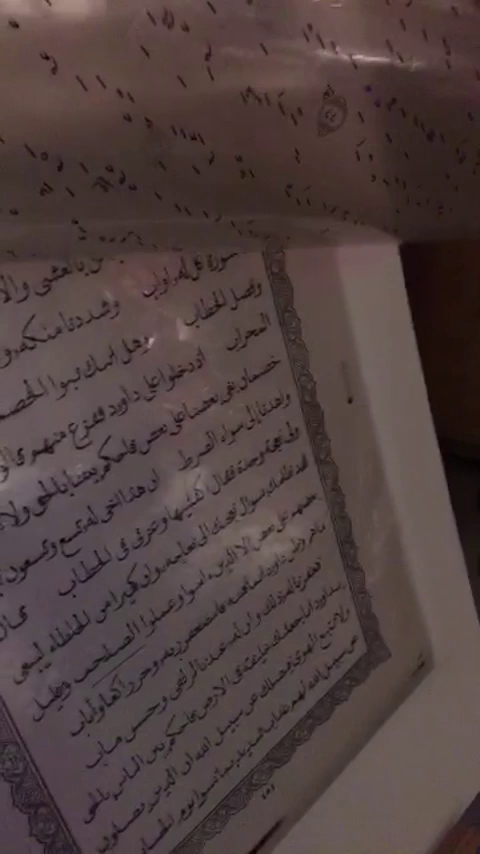 بالعشى والا
سورة كل له اواب وشددنا ملكه و
وفصل الخطاب وهل اتىك نبوا الخصم
المحراب اذ دخلوا على داود ففزع منهم قالو
خصمان بغى بعضنا على بعض فاحكم بيننا بالحق ولا
واهدنا الى سواء الصرط ان هذا اخى له تسع وتسعون
ولى نعجة وحدة فقال اكفلنيها وعزنى فى الخطاب قال
لقد ظلمك بسؤال نعجتك الى نعاجه وان كثيرا من الخلطاء ليبغى
بعضهم على بعض الا الذين امنوا وعملوا الصلحت وقليل
ما هم وظن داود انما فتنه فاستغفر ربه وخر راكعا واناب
فغفرنا له ذلك وان له عندنا لزلفى وحسن ماب
يداود انا جعلنك خليفة فى الارض فاحكم بين الناس بالحق
ولا تتبع الهوى فيضلك عن سبيل الله ان الذين يضلون
عن سبيل الله لهم عذاب شديد بما نسوا يوم الحساب